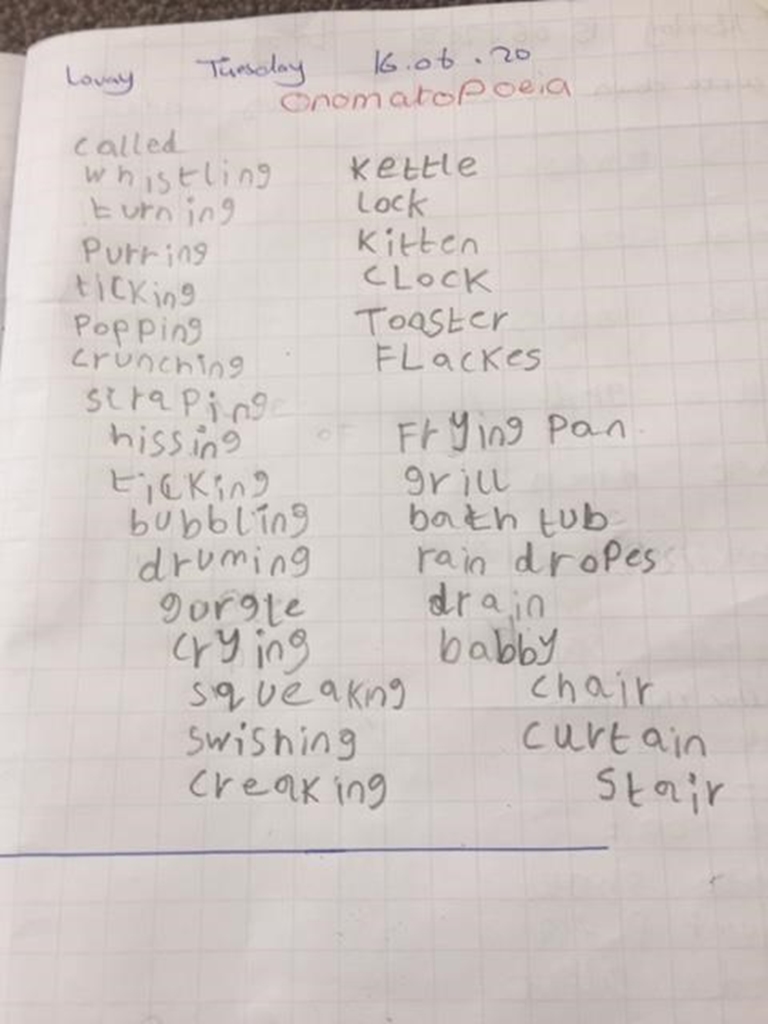 Lovay Tuesday 16.06.20
Onomatopoeia
called
whistling kettle
turning Lock
Purring kitten
ticking CLock
Popping Toaster
crunching FLackes
scraping
hissing Frying Pan
ticking grill
bubbling bath tub
druming rain dropes
gurgle drain
crying babby
squeakng chair
swishing curtain
creaking stair